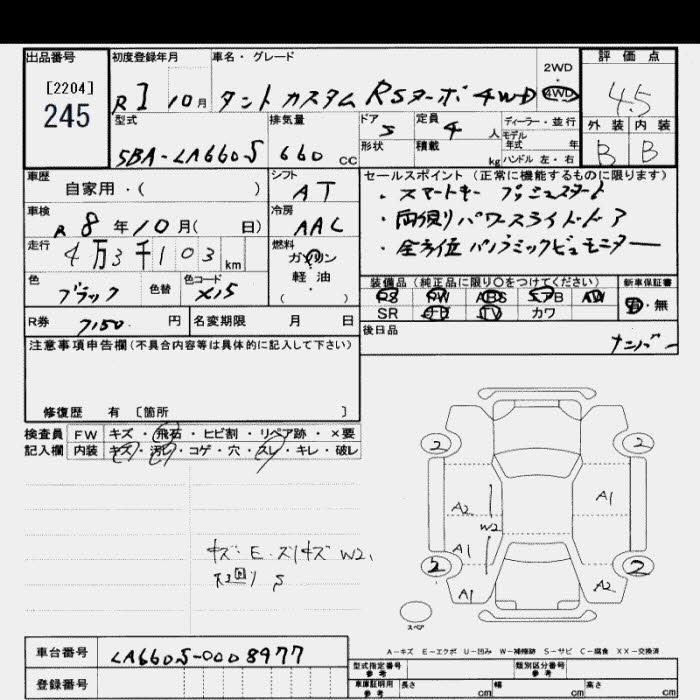 出品番号 初度登録年月 車名・グレード 2WD・4WD 評価点
[2204]
245
R1 10月 タントカスタム RSターボ 4WD 4.5
型式 排気量 ドア 定員 ディーラー・並行 外装 内装
5BA-LA660S 660 cc 5 4 人 モデル年式 年 B B
形状 積載 kg ハンドル 左・右
車歴 シフト セールスポイント(正常に機能するものに限ります)
自家用・( ) AT ・スマートキー プッシュスタート
車検 冷房 ・両側パワースライドドア
R 8年10月( 日) AAC ・全方位パノラミックビューモニター
走行 燃料
4万3千103 km ガソリン
軽油
( )
色 色替 色コード 装備品(純正品に限り〇をつけてください) 新車保証書
ブラック X15 PS PW ABS エアB AW 有・無
R券 7150円 名変期限 月 日 SR TV カワ
注意事項申告欄(不具合内容等は具体的に記入して下さい) 後日品
ナンバー
修復歴 有 [箇所 ]
検査員 FW キズ・飛石・ヒビ割・リペア跡・×要
記入欄 内装 キズ・汚レ・コゲ・穴・スレ・キレ・破レ
2 2
A2 A1
W2
A1
2 2
A1 A2
キズ・E・スリキズ W2、
スペア
A-キズ E-エクボ U-凹み W-補修跡 S-サビ C-腐食 XX-交換済
車台番号 LA660S-0008977
型式指定番号 参考 類別区分番号 参考
登録番号
車庫証明用 参考 長さ cm 幅 cm 高さ cm